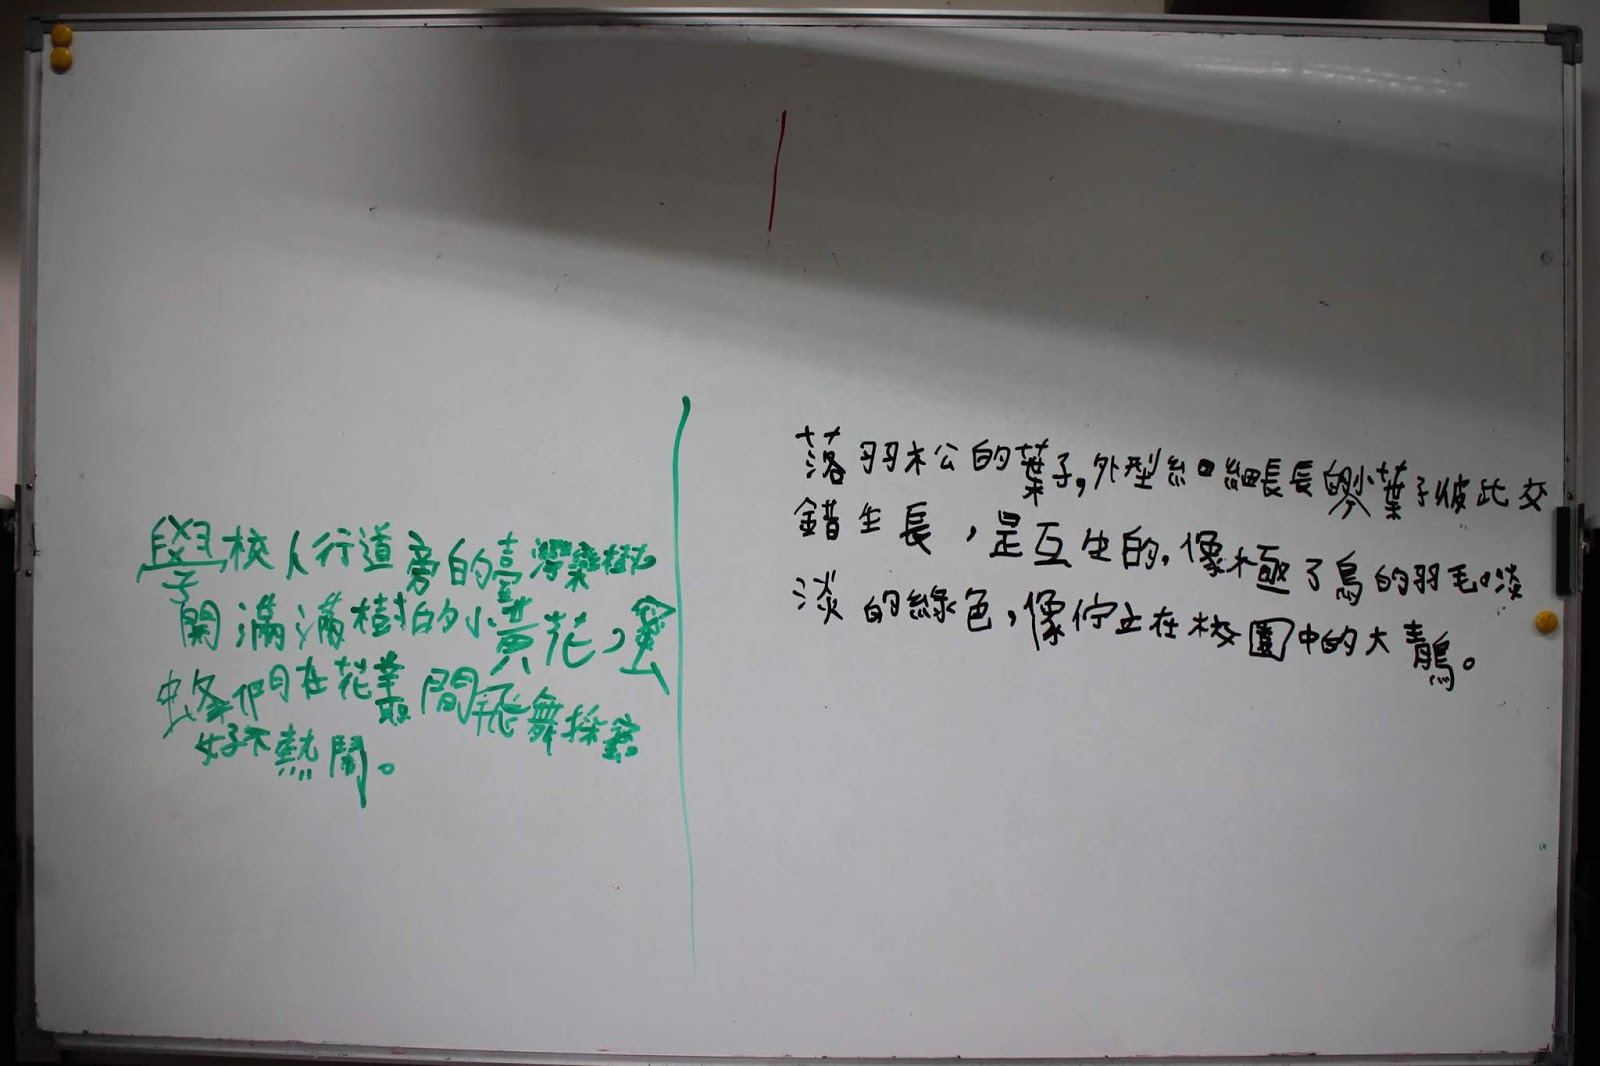 學校人行道旁的臺灣欒樹
開滿滿樹的小黃花,蜜
蜂們在花叢間飛舞採蜜
好不熱鬧。
落羽松的葉子,外型細細長長的小葉子彼此交
錯生長,是互生的,像極了鳥的羽毛。淡
淡的綠色,像佇立在校園中的大青鳥。